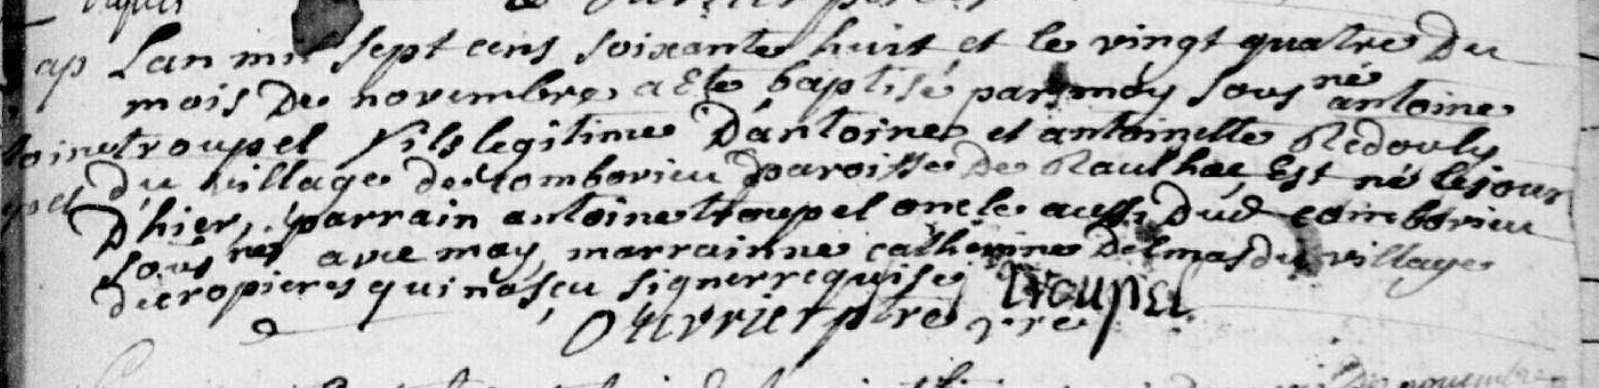 ap Lan mil sept cens soixante huit et le vingt quatre Du
mois De novembre a Ete baptisé par moy sous né antoine
toine troupel fils legitime D'antoine et antoinette Redouly
pel Du village de comborieu paroisse de Raulhac Est né le jour
D'hier, parrain antoine troupel oncle aussi Dud comborieu
sous nes avec moy, marrainne catherine Delmas du village
de cropieres qui na sçu signer requise Troupel
ouvrier ptre vre